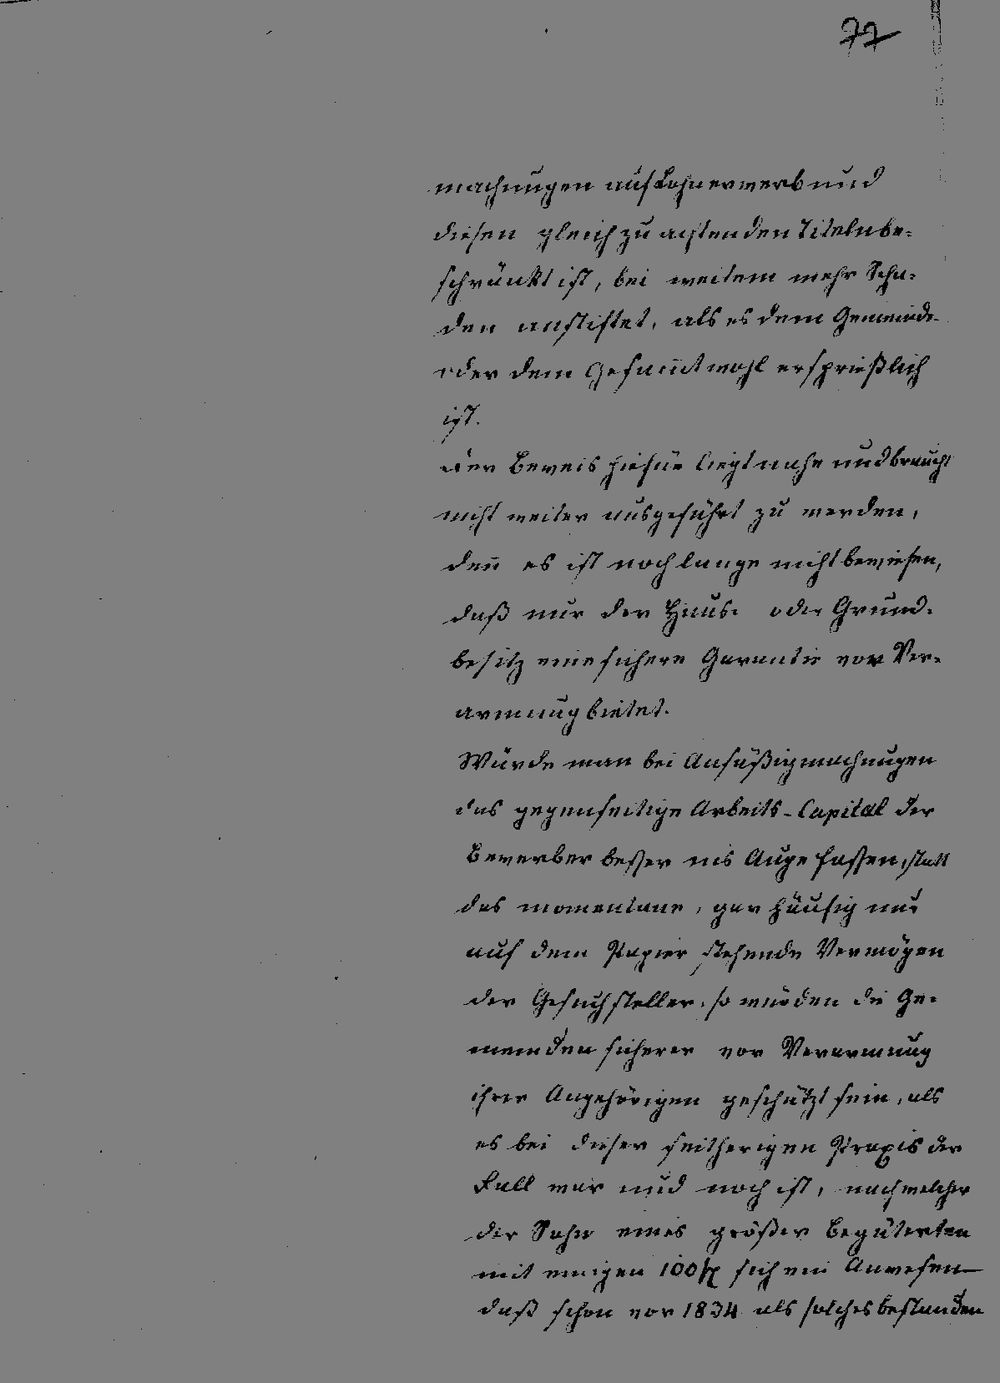 77
machungen auf Lohnerwerb und
diesen gleich zu achtenden Titeln be-
schränkt ist, bei weitem mehr Scha-
den anstiftet, als es dem Gemeinde-
oder dem Gesam̄twohl ersprießlich
ist.
Der Beweis hiefür liegt nahe und braucht
nicht weiter ausgeführt zu werden,
den̄ es ist noch lange nicht bewiesen,
daß nur der Haus- oder Grund-
besitz eine sichere Garantie vor Ver-
armung bietet.
Würde man bei Ansäßigmachungen
das gegenseitige Arbeits-Capital der
Bewerber besser ins Auge fassen, statt
das momentane, gar häufig nur
auf dem Papier stehende Vermögen
der Gesuchsteller, so würden die Ge-
meinden sicherer vor Verarmung
ihrer Angehörigen geschützt sein, als
es bei dieser seitherigen Praxis der
Fall war und noch ist, nach welcher
der Sohn eines größer Begüterten
mit einigen 100 f sich ein Anwesen
daß schon vor 1834 als solches bestanden